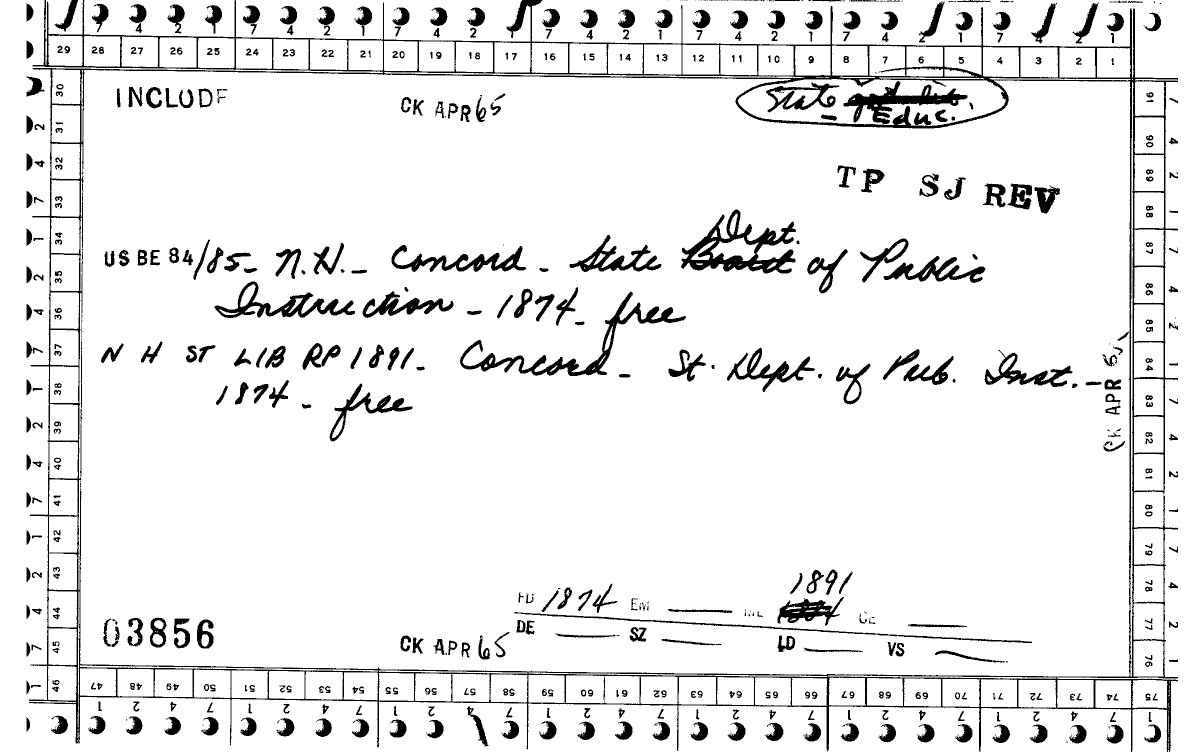 7 4 2 1 7 4 2 1 7 4 2 1 7 4 2 1 7 4 2 1 7 4 2 1 7 4 2 1
29 28 27 26 25 24 23 22 21 20 19 18 17 16 15 14 13 12 11 10 9 8 7 6 5 4 3 2 1
INCLUDE
CK APR 65
State govt. lib.
- Educ.
TP SJ REV
Dept.
US BE 84/85- N.H.- Concord - State Board of Public
Instruction - 1874 - free
N H ST LIB RP 1891- Concord - St. Dept. of Pub. Inst. -
1874 - free
CK APR 65
1891
FD 1874 EM ME 1884 CE
DE SZ LD VS
03856
CK APR 65
30 31 32 33 34 35 36 37 38 39 40 41 42 43 44 45 46
2 4 7 1 2 4 7 1 2 4 7 1 2 4 7 1
91 90 89 88 87 86 85 84 83 82 81 80 79 78 77 76 75
47 48 49 50 51 52 53 54 55 56 57 58 59 60 61 62 63 64 65 66 67 68 69 70 71 72 73 74 75
1 2 4 7 1 2 4 7 1 2 4 7 1 2 4 7 1 2 4 7 1 2 4 7 1 2 4 7 1